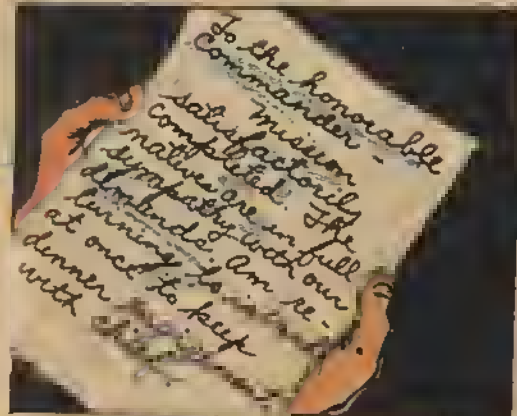 To the honorable
Commander -
Mission
satisfactorily
completed. The
natives are in full
sympathy with our
demands. Am re-
turning to
at once to keep
dinner
with chief